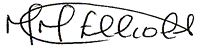 MM Elliott